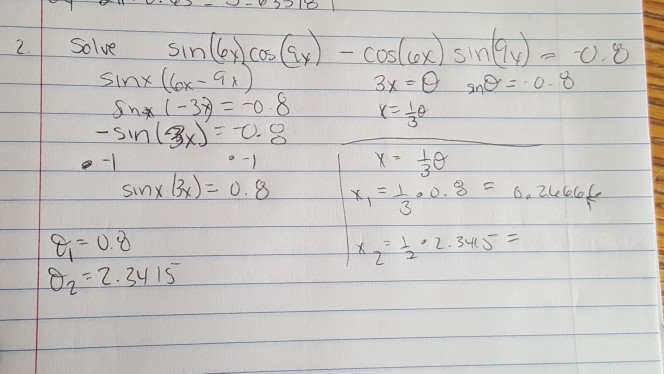 2. Solve sin(6x)cos(9x) - cos(6x) sin(9x) = -0.8
sinx (6x-9x)
sinx (-3x) = -0.8
-sin(3x) = -0.8
• -1 • -1
sinx (3x) = 0.8
θ₁ = 0.8
θ₂ = 2.3415
3x = θ sinθ = -0.8
x = 1/3 θ
x = 1/3 θ
x₁ = 1/3 • 0.8 = 0.26666
x₂ = 1/2 • 2.3415 =